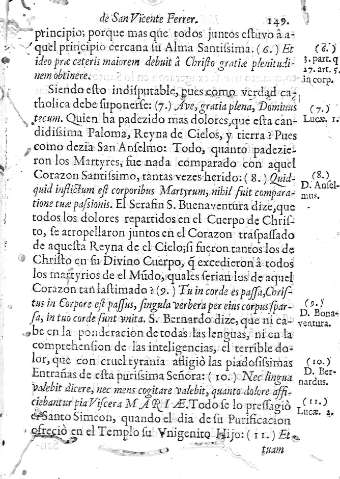 de San Vicente Ferrer. 149.
principio; porque mas que todos juntos estuvo à a-
quel principio cercana su Alma Santissima. (6.) Et
ideo præ ceteris maiorem debuit à Christo gratiæ plenitudi-
nem obtinere.
(6.)
3. part. q
27. art. 5.
in corp.
Siendo esto indisputable, pues como verdad ca-
tholica debe suponerse: (7.) Ave, gratia plena, Dominus
tecum. Quien ha padezido mas dolores, que esta can-
didissima Paloma, Reyna de Cielos, y tierra? Pues
como dezia San Anselmo: Todo, quanto padezie-
ron los Martyres, fue nada comparado con aquel
Corazon Santissimo, tantas vezes herido: (8.) Quid-
quid inflictum est corporibus Martyrum, nihil fuit compara-
tione tuæ passionis. El Serafin S. Buenaventura dize, que
todos los dolores repartidos en el Cuerpo de Chris-
to, se atropellaron juntos en el Corazon traspassado
de aquesta Reyna de el Cielo; si fueron tantos los de
Christo en su Divino Cuerpo, q̃ excedieron à todos
los martyrios de el Mũdo, quales serian los de aquel
Corazon tan lastimado? (9.) Tu in corde es passa, Chris-
tus in Corpore est passus, singula verbera per eius corpus spar-
sa, in tuo corde sunt vnita. S. Bernardo dize, que ni ca-
be en la ponderacion de todas las lenguas, ni en la
comprehension de las inteligencias, el terrible do-
lor, que con cruel tyrania afligiò las piadosissimas
Entrañas de esta purissima Señora: (10.) Nec lingua
valebit dicere, nec mens cogitare valebit, quanto dolore affi-
ciebantur pia Viscera MARIÆ. Todo se lo pressagiò
Santo Simeon, quando el dia de su Purificacion
ofreciò en el Templo su Vnigenito Hijo: (11.) Et
tuam
(7.)
Lucæ. 1.
(8.)
D. Ansel-
mus.
(9.)
D. Bona-
ventura.
(10.)
D. Ber-
nardus.
(11.)
Lucæ. 2.